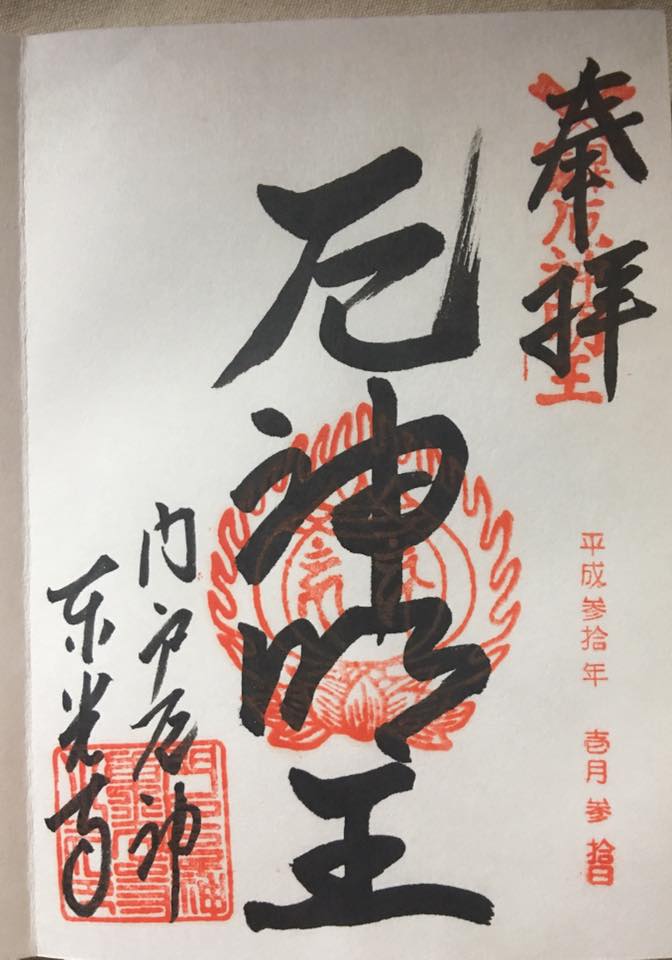 奉拝
平成参拾年 壱月参拾日
厄神明王
门戸厄神
东光寺